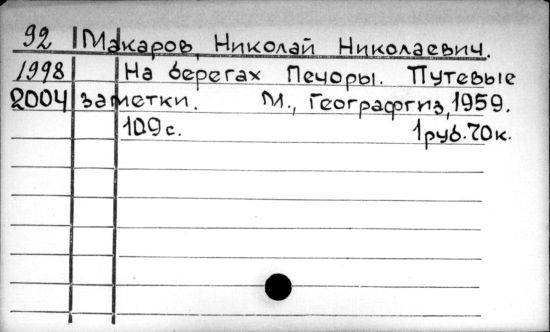 92 Макаров, Николай Николаевич.
1998 На берегах Печоры. Путевые
2004 заметки. М., Географгиз, 1959.
109 с. 1 руб. 70 к.